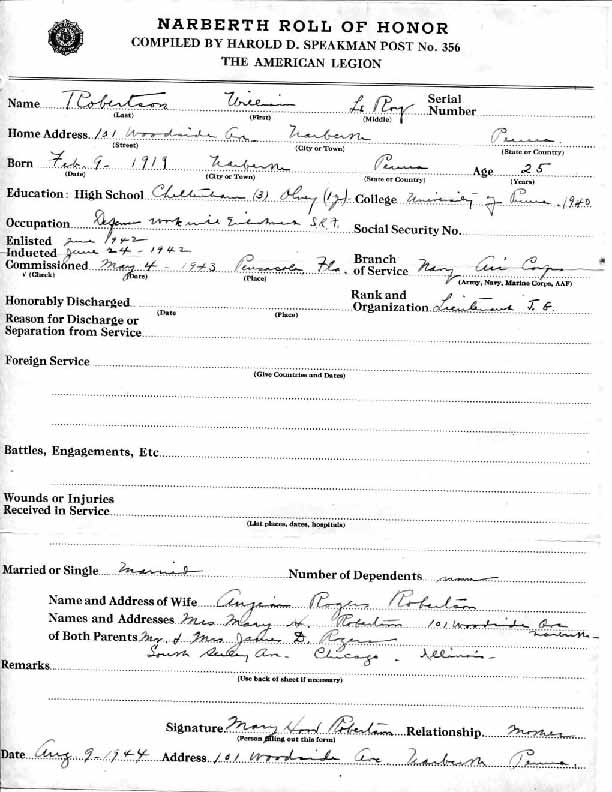 NARBERTH ROLL OF HONOR
COMPILED BY HAROLD D. SPEAKMAN POST No. 356
THE AMERICAN LEGION
Name Robertson William Le Roy Serial Number
(Last) (First) (Middle)
Home Address 101 Woodside Av Narberth Penna
(Street) (City or Town) (State or Country)
Born Feb. 9 - 1919 Narberth Penna Age 25
(Date) (City or Town) (State or Country) (Years)
Education: High School Cheltenham (3) Olney (12) College University of Penna. 1940
Occupation Defense work with S.K.F. Social Security No.
Enlisted June 1942
Inducted June 24 - 1942
Commissioned May 4 - 1943 Pensacola Fla. Branch of Service Navy Air Corps
√ (Check) (Date) (Place) (Army, Navy, Marine Corps, AAF)
Honorably Discharged Rank and Organization Lieutenant J. G.
(Date (Place)
Reason for Discharge or
Separation from Service
Foreign Service
(Give Countries and Dates)
Battles, Engagements, Etc
Wounds or Injuries
Received in Service
(List places, dates, hospitals)
Married or Single Married Number of Dependents none
Name and Address of Wife Rogers Robertson
Names and Addresses Mrs. Mary H. Robertson 101 Woodside Ave Narberth
of Both Parents Mr. & Mrs. James D. Rogers
South Av. Chicago. Illinois
Remarks
(Use back of sheet if necessary)
Signature Mary Hood Robertson Relationship mother
(Person filling out this form)
Date Aug 9 - 1944 Address 101 Woodside Ave Narberth Penna.